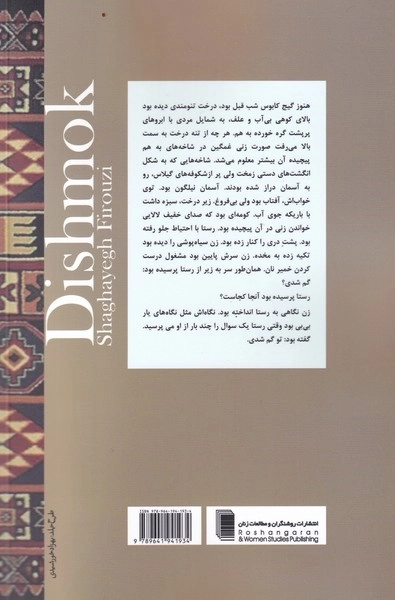 هنوز گیج کابوس شب قبل بود، درخت تنومندی دیده بود
بالای کوهی بی‌آب و علف، به شمایل مردی با ابروهای
پرپشت گره خورده به هم. هر چه از تنه درخت به سمت
بالا می‌رفت صورت زنی غمگین در شاخه‌های به هم
پیچیده آن بیشتر معلوم می‌شد. شاخه‌هایی که به شکل
انگشت‌های دستی زمخت ولی پر ازشکوفه‌های گیلاس، رو
به آسمان دراز شده بودند. آسمان نیلگون بود. توی
خواب‌اش، آفتاب بود ولی بی‌فروغ. زیر درخت، سبزه داشت
با باریکه جوی آب. کومه‌ای بود که صدای خفیف لالایی
خواندن زنی در آن پیچیده بود. رستا با احتیاط جلو رفته
بود. پشتِ دری را کنار زده بود. زن سیاه‌پوشی را دیده بود
تکیه زده به مخده. زن سرش پایین بود مشغول درست
کردن خمیر نان. همان‌طور سر به زیر از رستا پرسیده بود:
گم شدی؟
رستا پرسیده بود آنجا کجاست؟
زن نگاهی به رستا انداخته بود. نگاه‌اش مثل نگاه‌های یار
بی‌بی بود وقتی رستا یک سوال را چند بار از او می پرسید.
گفته بود: تو گم شدی.
Dishmok
Shaghayegh Firouzi
انتشارات روشنگران و مطالعات زنان
Roshangaran
& Women Studies Publishing
ISBN: 978-964-194-193-4
9 789641 941934
طرح جلد: بهزاد خورشیدی